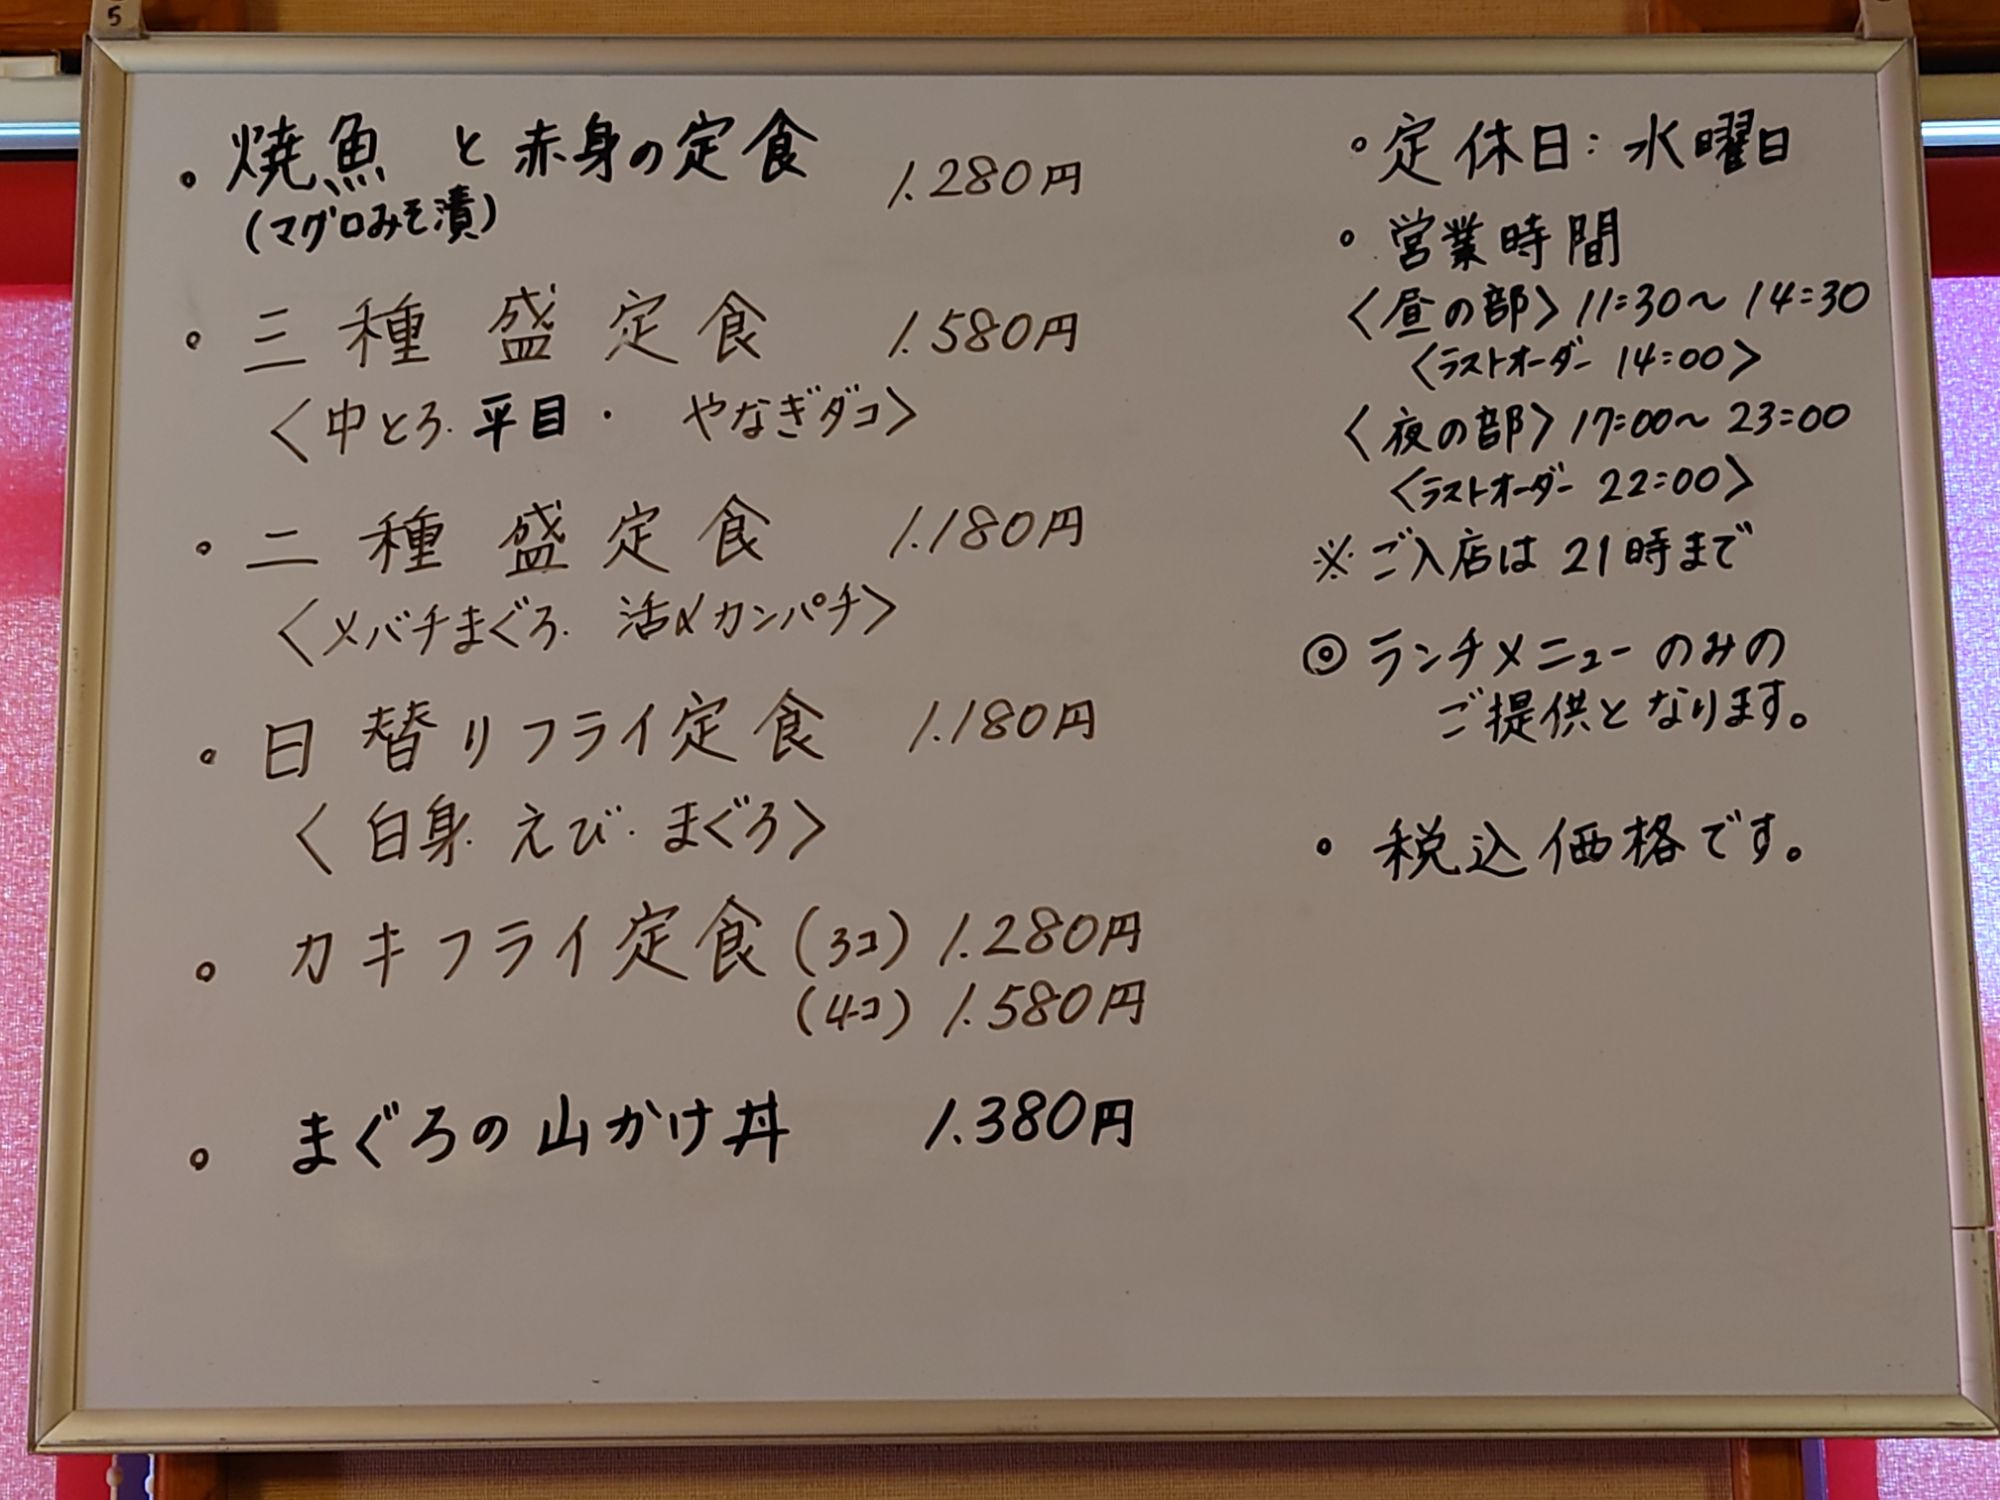 5
• 焼魚 と 赤身の定食 1.280円
(マグロみそ漬)
• 三種盛定食 1.580円
〈中とろ. 平目・ やなぎダコ〉
• 二種盛定食 1.180円
〈メバチまぐろ. 活〆カンパチ〉
• 日替りフライ定食 1.180円
〈白身. えび. まぐろ〉
• カキフライ定食 (3コ) 1.280円
(4コ) 1.580円
• まぐろの山かけ丼 1.380円
• 定休日: 水曜日
• 営業時間
〈昼の部〉11:30〜14:30
〈ラストオーダー 14:00〉
〈夜の部〉17:00〜23:00
〈ラストオーダー 22:00〉
※ご入店は21時まで
◎ ランチメニューのみの
ご提供となります。
• 税込価格です。